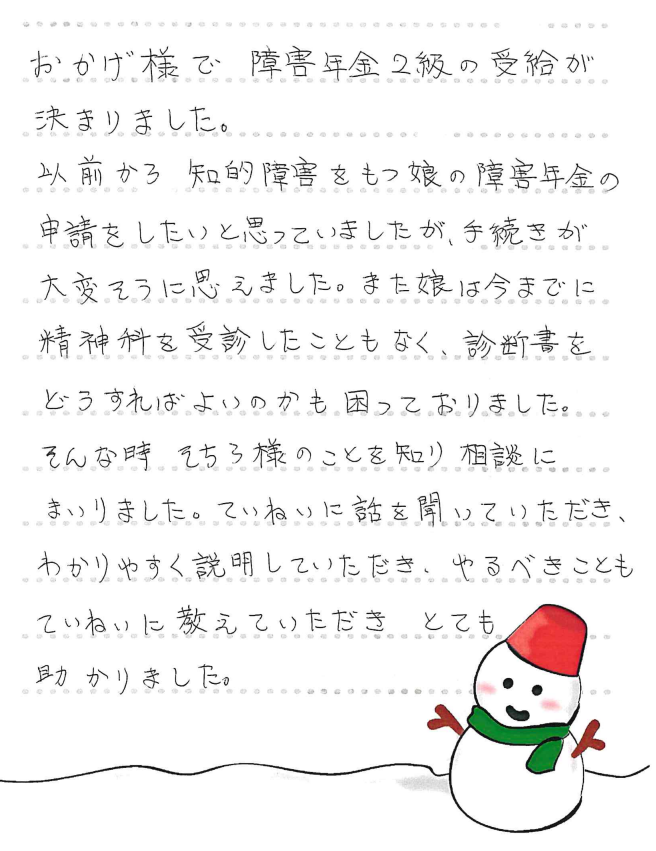 おかげ様で 障害年金2級の受給が
決まりました。
以前から 知的障害をもつ娘の障害年金の
申請をしたいと思っていましたが、手続きが
大変そうに思えました。また娘は今までに
精神科を受診したこともなく、診断書を
どうすればよいのかも困っておりました。
そんな時 そちら様のことを知り相談に
まいりました。ていねいに話を聞いていただき、
わかりやすく説明していただき、やるべきことも
ていねいに教えていただき とても
助かりました。